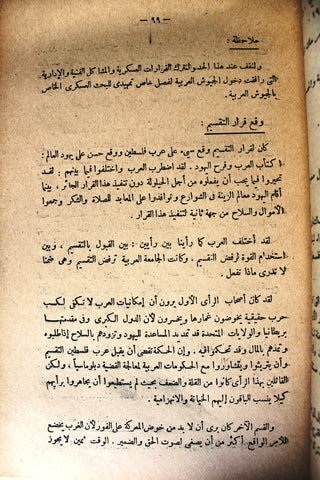 — ٩٩ —
ملاحظة :
ولنقف عند هذا الحد ولنترك القرارات العسكرية والمشاكل الفنية والادارية
التي رافقت دخول الجيوش العربية لفصل خاص تمهيدي للبحث العسكري الخاص
بالجيوش العربية .
وقع قرار التقسيم :
كان لقرار التقسيم وقع سيء على عرب فلسطين ووقع حسن على يهود العالم :
اكتأب العرب وفرح اليهود . لقد اضطرب العرب واختلفوا فيما بينهم : لقد
تحيروا فيما يجب أن يفعلوه من أجل الحيلولة دون تنفيذ هذا القرار الجائر . بينما
أقام اليهود معالم الزينة في الشوارع وتوافدوا على المعابد للصلاة والشكر وجمعوا
الأموال والسلاح من جهة ثانية لتنفيذ هذا القرار .
لقد أختلف العرب كما رأينا بين رأيين : بين القبول بالتقسيم ، وبين
استخدام القوة لرفض التقسيم ، وكانت الجامعة العربية ترفض التقسيم وهي ضمنًا
لا تدري ماذا تفعل .
لقد كان أصحاب الرأي الأول يرون أن إمكانيات العرب لا تكفي لكسب
حرب حقيقية يخوضون غمارها ويخسرون لأن الدول الكبرى وفي مقدمتها
بريطانيا والولايات المتحدة قد تمد المساعدة لليهود وتزودهم بالسلاح إذا طلبوه
وتمدهم بالمال وقد تحكم نزاقيه . وإن الحكمة تقضي أن يقبل عرب فلسطين التقسيم
وأن يتريثوا ويتشاوروا مع الحكومات العربية لمعالجة القضية دبلوماسيًا ، ولكن
القائلين بهذا الرأي كانوا من القلة والضعف بحيث لم يستطيعوا أن يجاهروا برأيهم
كيلا ينسب الباقون إليهم الخيانة والانهزامية .
والقسم الآخر كان يرى أن لا بد من خوض المعركة على الفور لأن الغرب يخضع
للأمر الواقع أكثر من أن يصغي لصوت الحق والضمير . الوقت ثمين لا يجوز